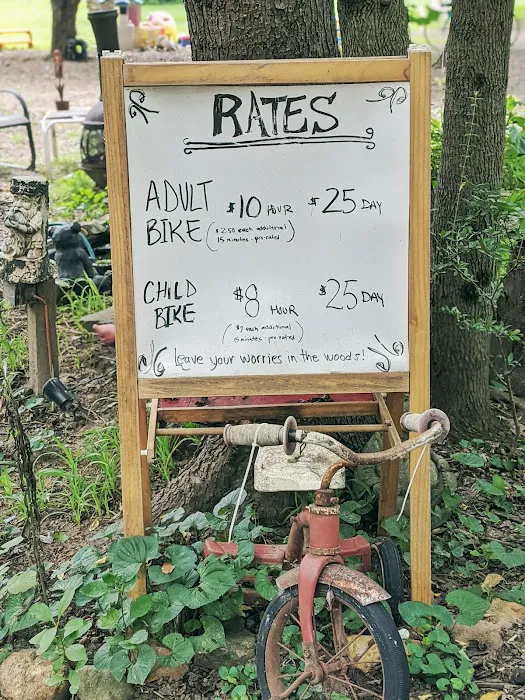 RATES
ADULT BIKE $10 HOUR $25 DAY
($2.50 each additional
15 minutes - pro-rated)
CHILD BIKE $8 HOUR $25 DAY
each additional
minutes - pro-rated)
Leave your worries in the woods!